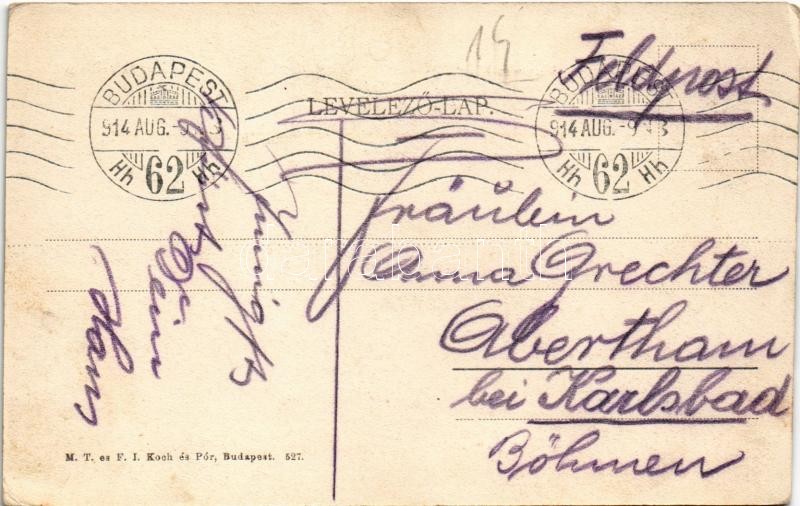 14
Feldpost
BUDAPEST
914 AUG.-9
62
Hh Hh
LEVELEZŐ-LAP.
BUDAPEST
914 AUG.-9
62
Hh Hh
Fräulein
Anna Grechter
Abertham
bei Karlsbad
Böhmen
Dein
Hans
M. T. es F. I. Koch és Pór, Budapest. 527.
darabanth